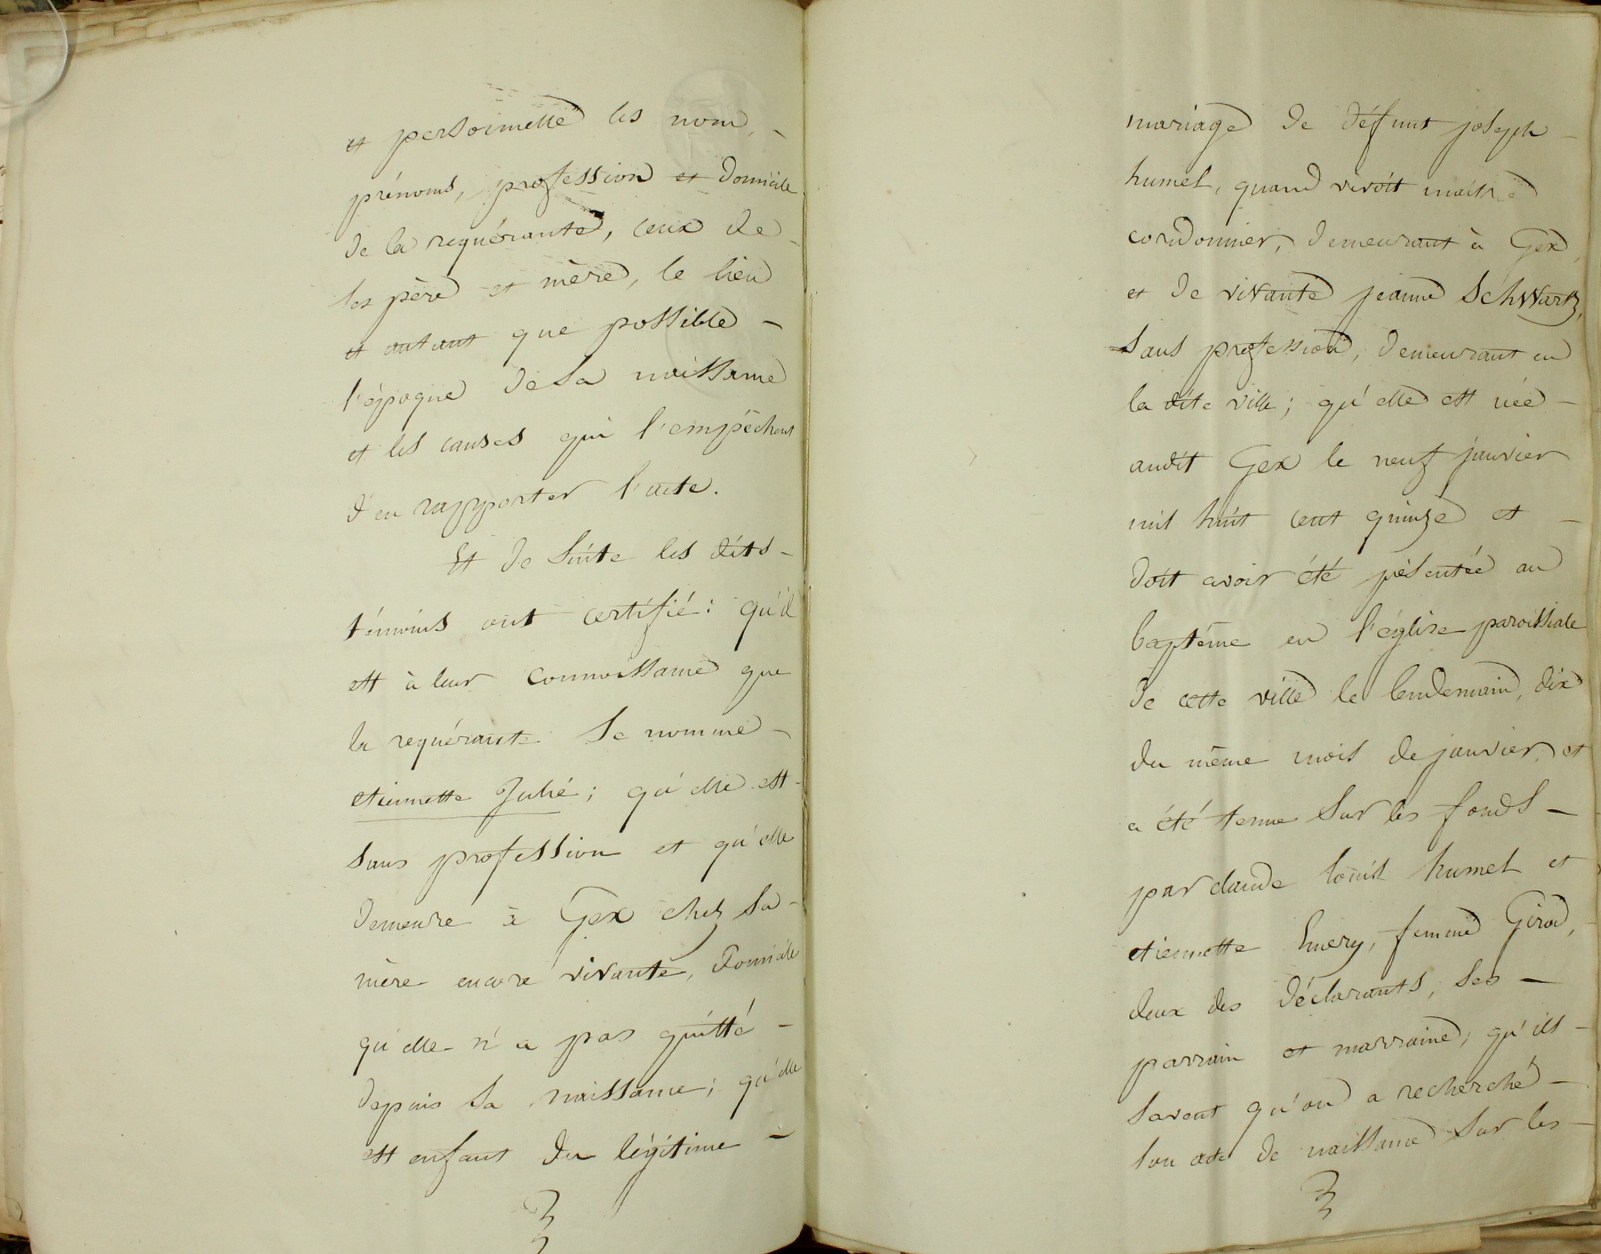 et personnelle les nom, -
prénoms, profession et domicile
de la requérante, ceux de -
ses père et mère, le lieu
et autant que possible -
l'époque de sa naissance
et les causes qui l'empêchent
d'en rapporter l'acte.
Et de suite les dits -
témoins ont certifié : qu'il
est à leur connoissance que
la requérante se nomme -
etiennette Julie ; qu'elle est -
sans profession et qu'elle
demeure à Gex chez sa -
mère encore vivante, domicile
qu'elle n'a pas quitté -
depuis sa naissance ; qu'elle
est enfant du légitime -
mariage de défunt joseph -
humel, quand vivoit maitre
cordonnier, demeurant à Gex,
et de vivante jeanne Schwartz,
sans profession, demeurant en
la dite ville ; qu'elle est née -
audit Gex le neuf janvier
mil huit cent quinze et -
doit avoir été présentée au
baptême en l'église paroissiale
de cette ville le lendemain, dix
du même mois de janvier, et
a été tenue sur les fonds -
par claude louis humel et
etiennette Emery, femme Girod, -
deux des déclarants, ses -
parrain et marraine ; qu'ils -
savent qu'on a recherché -
son acte de naissance sur les -